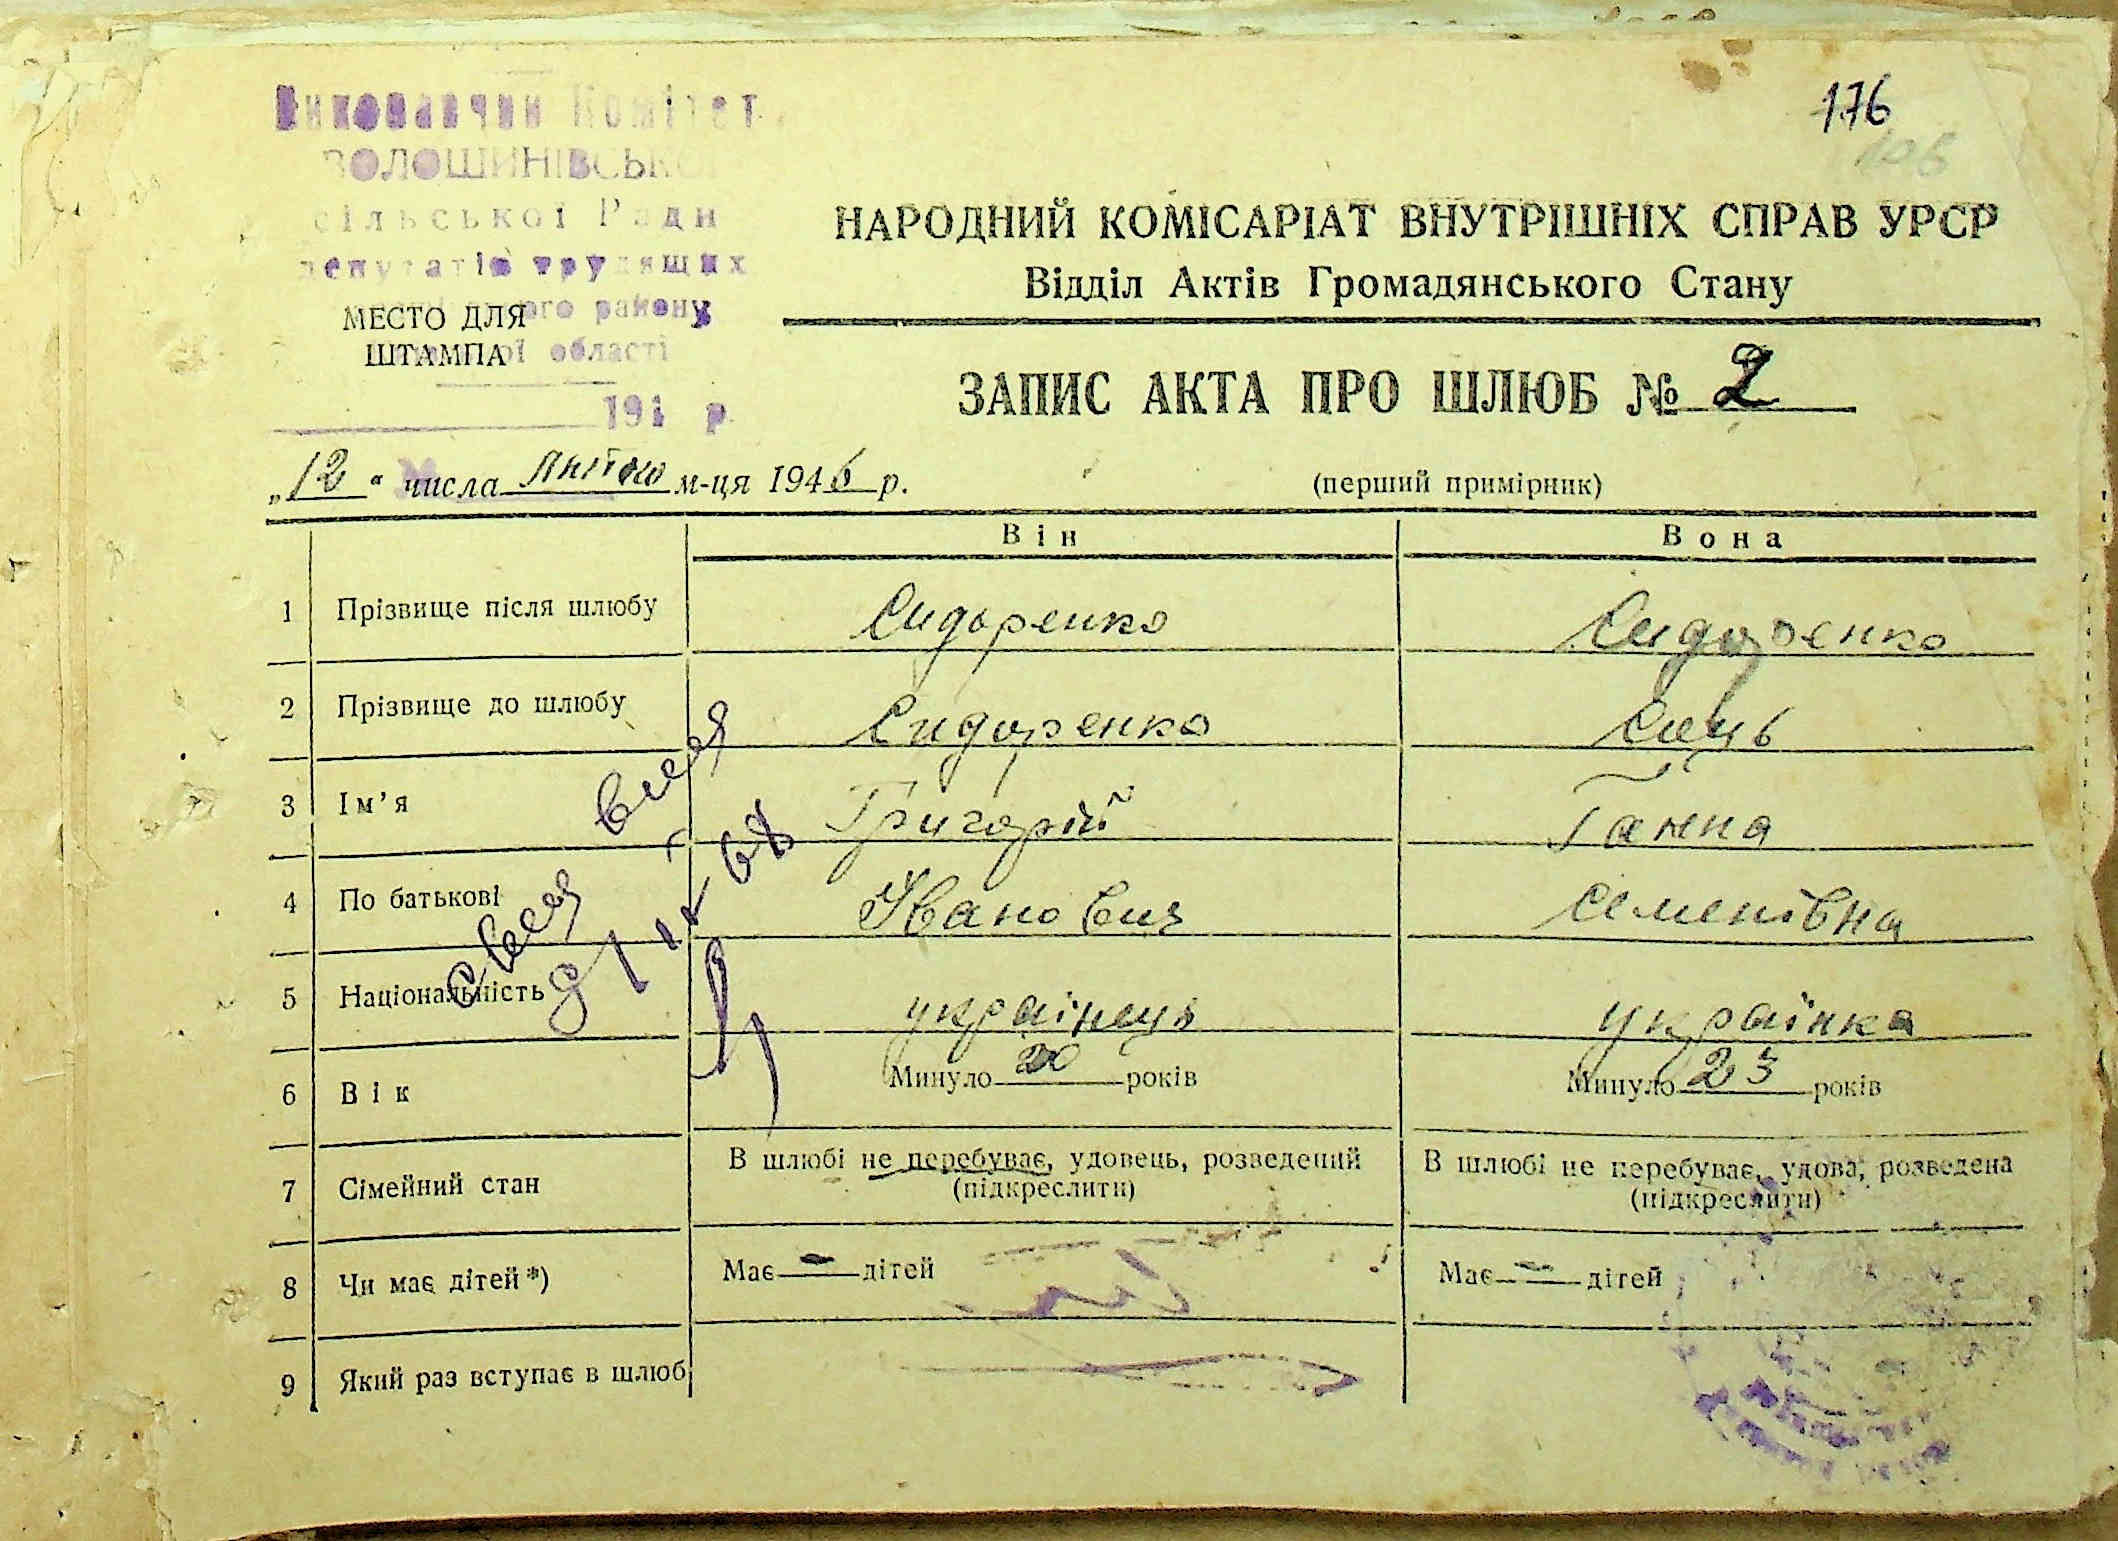 Виконавчий Комітет
ВОЛОШИНІВСЬКОЇ
сільської Ради
депутатів трудящих
району
області
МЕСТО ДЛЯ
ШТАМПА
194 р.
176
106
НАРОДНИЙ КОМІСАРІАТ ВНУТРІШНІХ СПРАВ УРСР
Відділ Актів Громадянського Стану
ЗАПИС АКТА ПРО ШЛЮБ № 2
„12“ числа лютого м-ця 1946 р.
(перший примірник)
Він Вона
1 Прізвище після шлюбу Сидоренко Сидоренко
2 Прізвище до шлюбу Сидоренко
3 Ім’я Григорій Ганна
4 По батькові Іванович Семенівна
5 Національність українець українка
6 Вік Минуло 20 років Минуло 23 років
7 Сімейний стан В шлюбі не перебуває, удовець, розведений В шлюбі не перебуває, удова, розведена
(підкреслити) (підкреслити)
8 Чи має дітей*) Має — дітей Має — дітей
9 Який раз вступає в шлюб